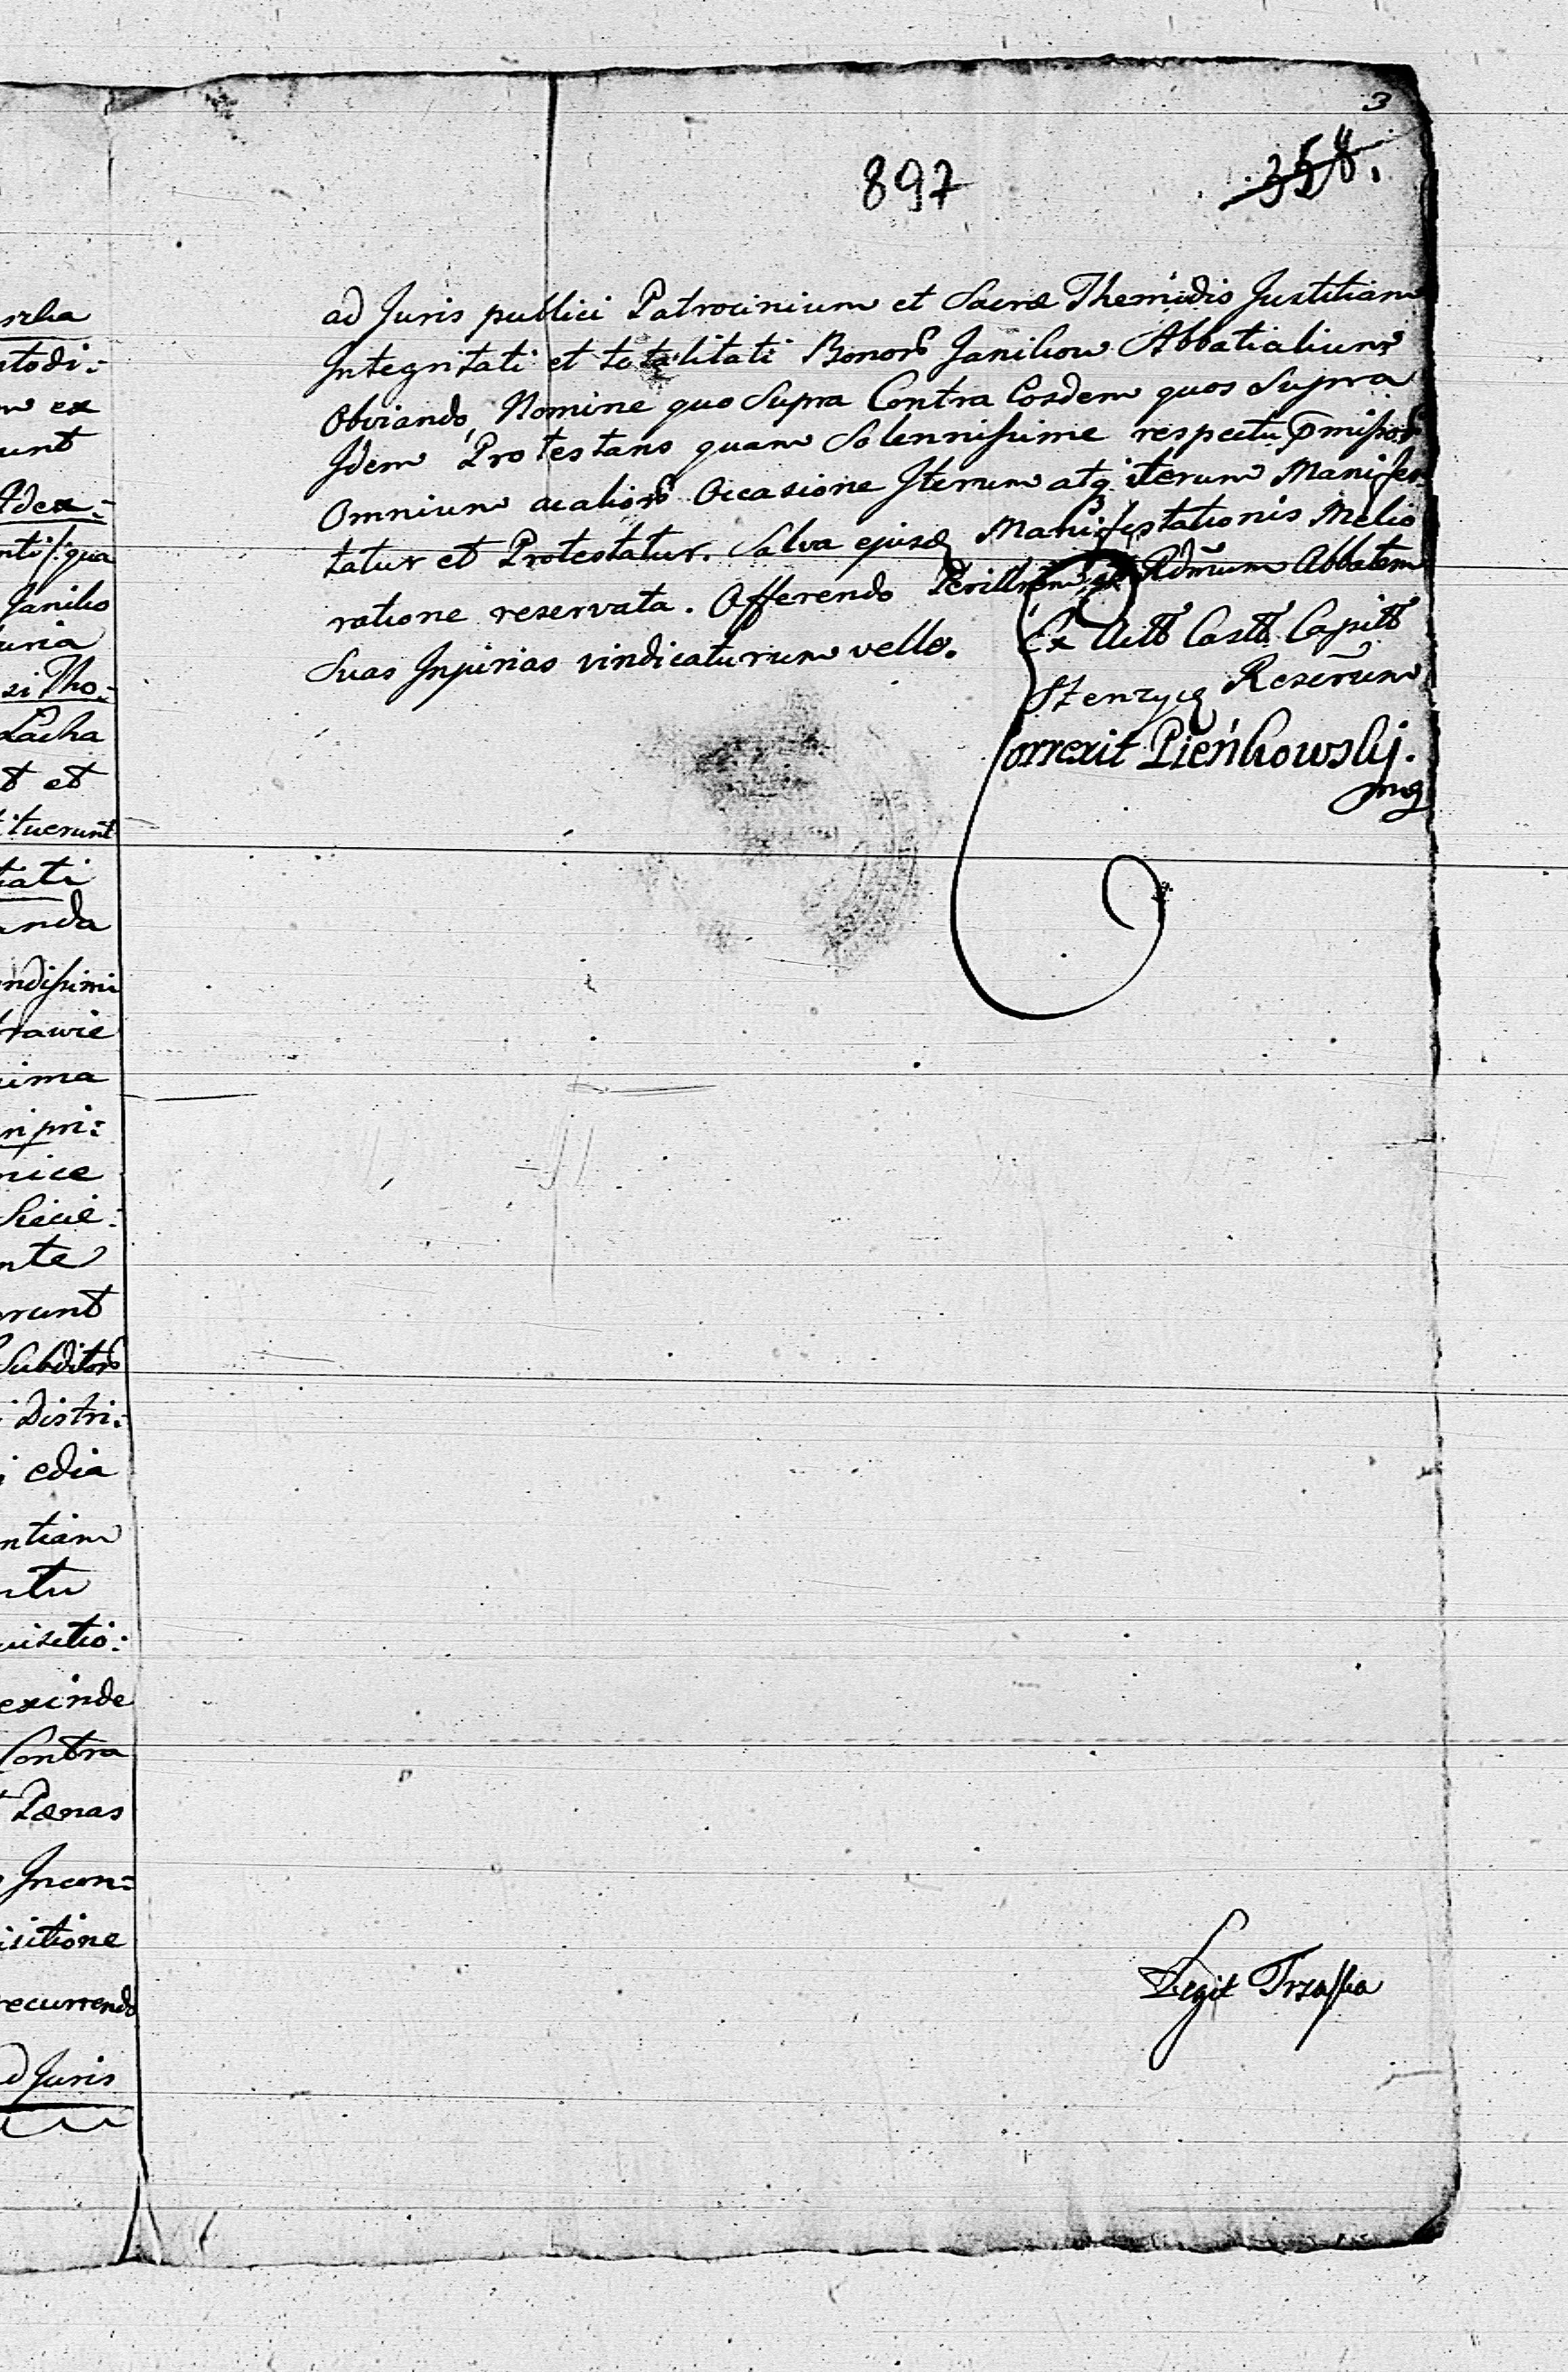 3
897
358.
ad Juris publici Patrocinium et Sacræ Themidis Justitiam
Integritati et totalitati Bonor Janikow Abbatialium
Obviando, Nomine quo Supra Contra Eosdem quos Supra
Idem Protestans quam Solennissime respectu p̄missor
Omnium acalior Occasione Iterum atq iterum Manifes-
tatur et Protestatur. Salva ejusd Manifestationis Melio
ratione reservata. Offerendo Perillrem Admūm Abbatem
Suas Injurias vindicaturum velle.
Ex Actt Castt Capitt
Stenzyc Reserūm
Correxit Pieńkowskj.
mp
Legit Trzaska
rcha
stodi:
m ex
unt
Adex:
nti/: qua
Janiko
uria
si Tho:
Lacha
t et
tituerunt
tiati
anda
endissimi
trawie
uima
in pri:
nice
Siecie:
nte
arunt
Subditor
Distri:
i edia
ntiam
ntu
uisitio:
exinde
Contra
Pænas
Incon:
isitione
recurrendo
ad Juris